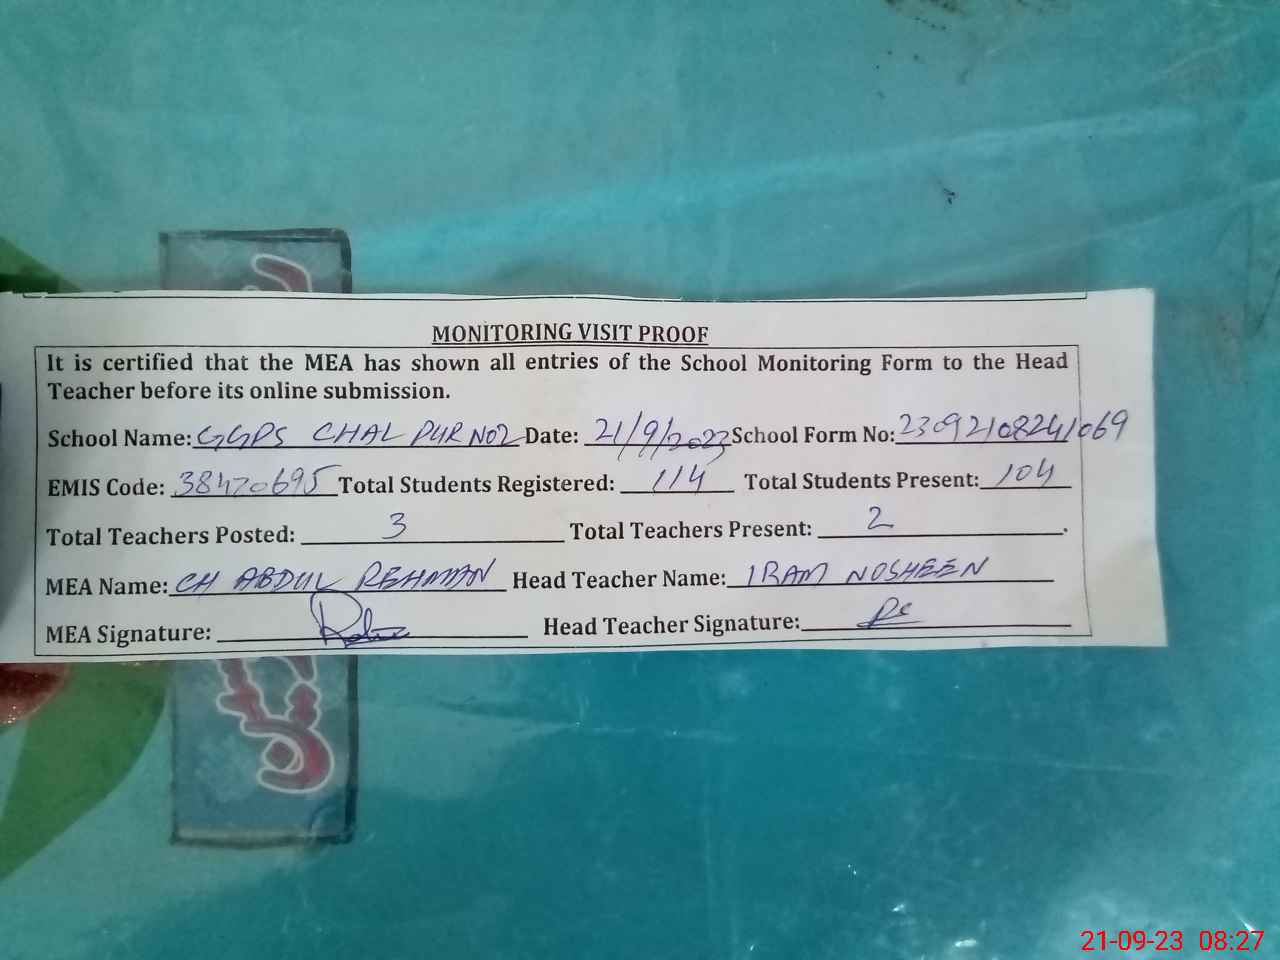 MONITORING VISIT PROOF
It is certified that the MEA has shown all entries of the School Monitoring Form to the Head
Teacher before its online submission.
School Name: GGPS CHAL PUR NO2 Date: 21/9/2023 School Form No: 23092108241069
EMIS Code: 38470695 Total Students Registered: 114 Total Students Present: 104
Total Teachers Posted: 3 Total Teachers Present: 2.
MEA Name: CH ABDUL REHMAN Head Teacher Name: IRAM NOSHEEN
MEA Signature: Head Teacher Signature:
21-09-23 08:27